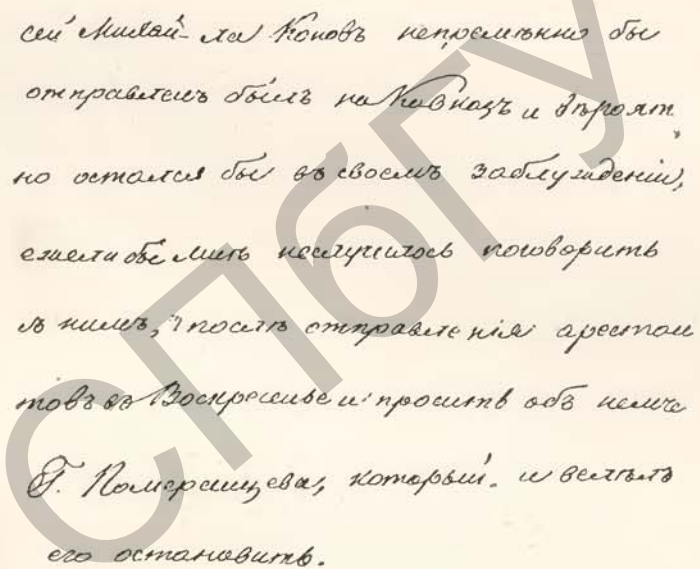 сей Михай-ла Коновъ непремѣнно бы
отправленъ былъ на Кавказъ и вѣроят
но остался бы въ своемъ заблужденіи,
ежели бы мнѣ неслучилось поговорить
съ нимъ, послѣ отправленія арестан
товъ въ Воскресенье и просить объ немъ
Г. Померанцева, который и велѣлъ
его остановить.
СПбГУ